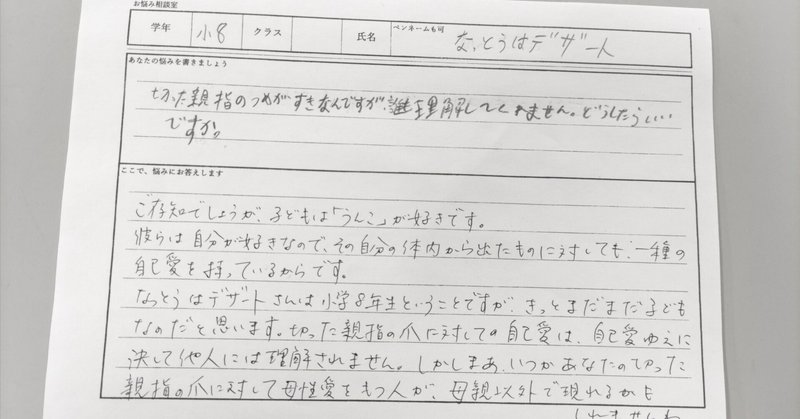 お悩み相談室
学年 小8 クラス 氏名 ペンネームも可 なっとうはデザート
あなたの悩みを書きましょう
切った親指のつめがすきなんですが、誰も理解してくれません。どうしたらいい
ですか。
ここで、悩みにお答えします
ご存知でしょうが、子どもは「うんこ」が好きです。
彼らは自分が好きなので、その自分の体内から出たものに対しても、一種の
自己愛を持っているからです。
なっとうはデザートさんは小学8年生ということですが、きっとまだまだ子ども
なのだと思います。切った親指の爪に対しての自己愛は、自己愛ゆえに
決して他人には理解されません。しかしまあ、いつかあなたの切った
親指の爪に対して母性愛をもつ人が、母親以外で現れるかも
しれませんね